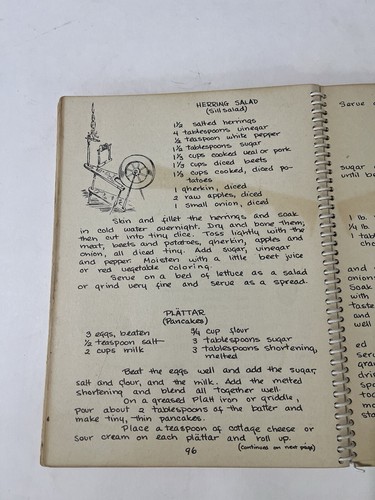 HERRING SALAD
(Sillsalad)
1½ salted herrings
4 tablespoons vinegar
½ teaspoon white pepper
1½ tablespoons sugar
1½ cups cooked veal or pork
1½ cups diced beets
1½ cups cooked, diced po-
tatoes
1 gherkin, diced
2 raw apples, diced
1 small onion, diced
Skin and fillet the herrings and soak
in cold water overnight. Dry and bone them;
then cut into tiny dice. Toss lightly with the
meat, beets and potatoes, gherkin, apples and
onion, all diced tiny. Add sugar, vinegar
and pepper. Moisten with a little beet juice
or red vegetable coloring.
Serve on a bed of lettuce as a salad
or grind very fine and serve as a spread.
PLÄTTAR
(Pancakes)
3 eggs, beaten
½ teaspoon salt
2 cups milk
¾ cup flour
3 tablespoons sugar
3 tablespoons shortening,
melted
Beat the eggs well and add the sugar,
salt and flour, and the milk. Add the melted
shortening and blend all together well.
On a greased Platt iron or griddle,
pour about 2 tablespoons of the batter and
make tiny, thin pancakes.
Place a teaspoon of cottage cheese or
sour cream on each plättar and roll up.
(continued on next page)
96
Serve
sugar
until
1 lb.
¼ lb.
1 tab
and
onions
Soak
with
taste
and
well
ed